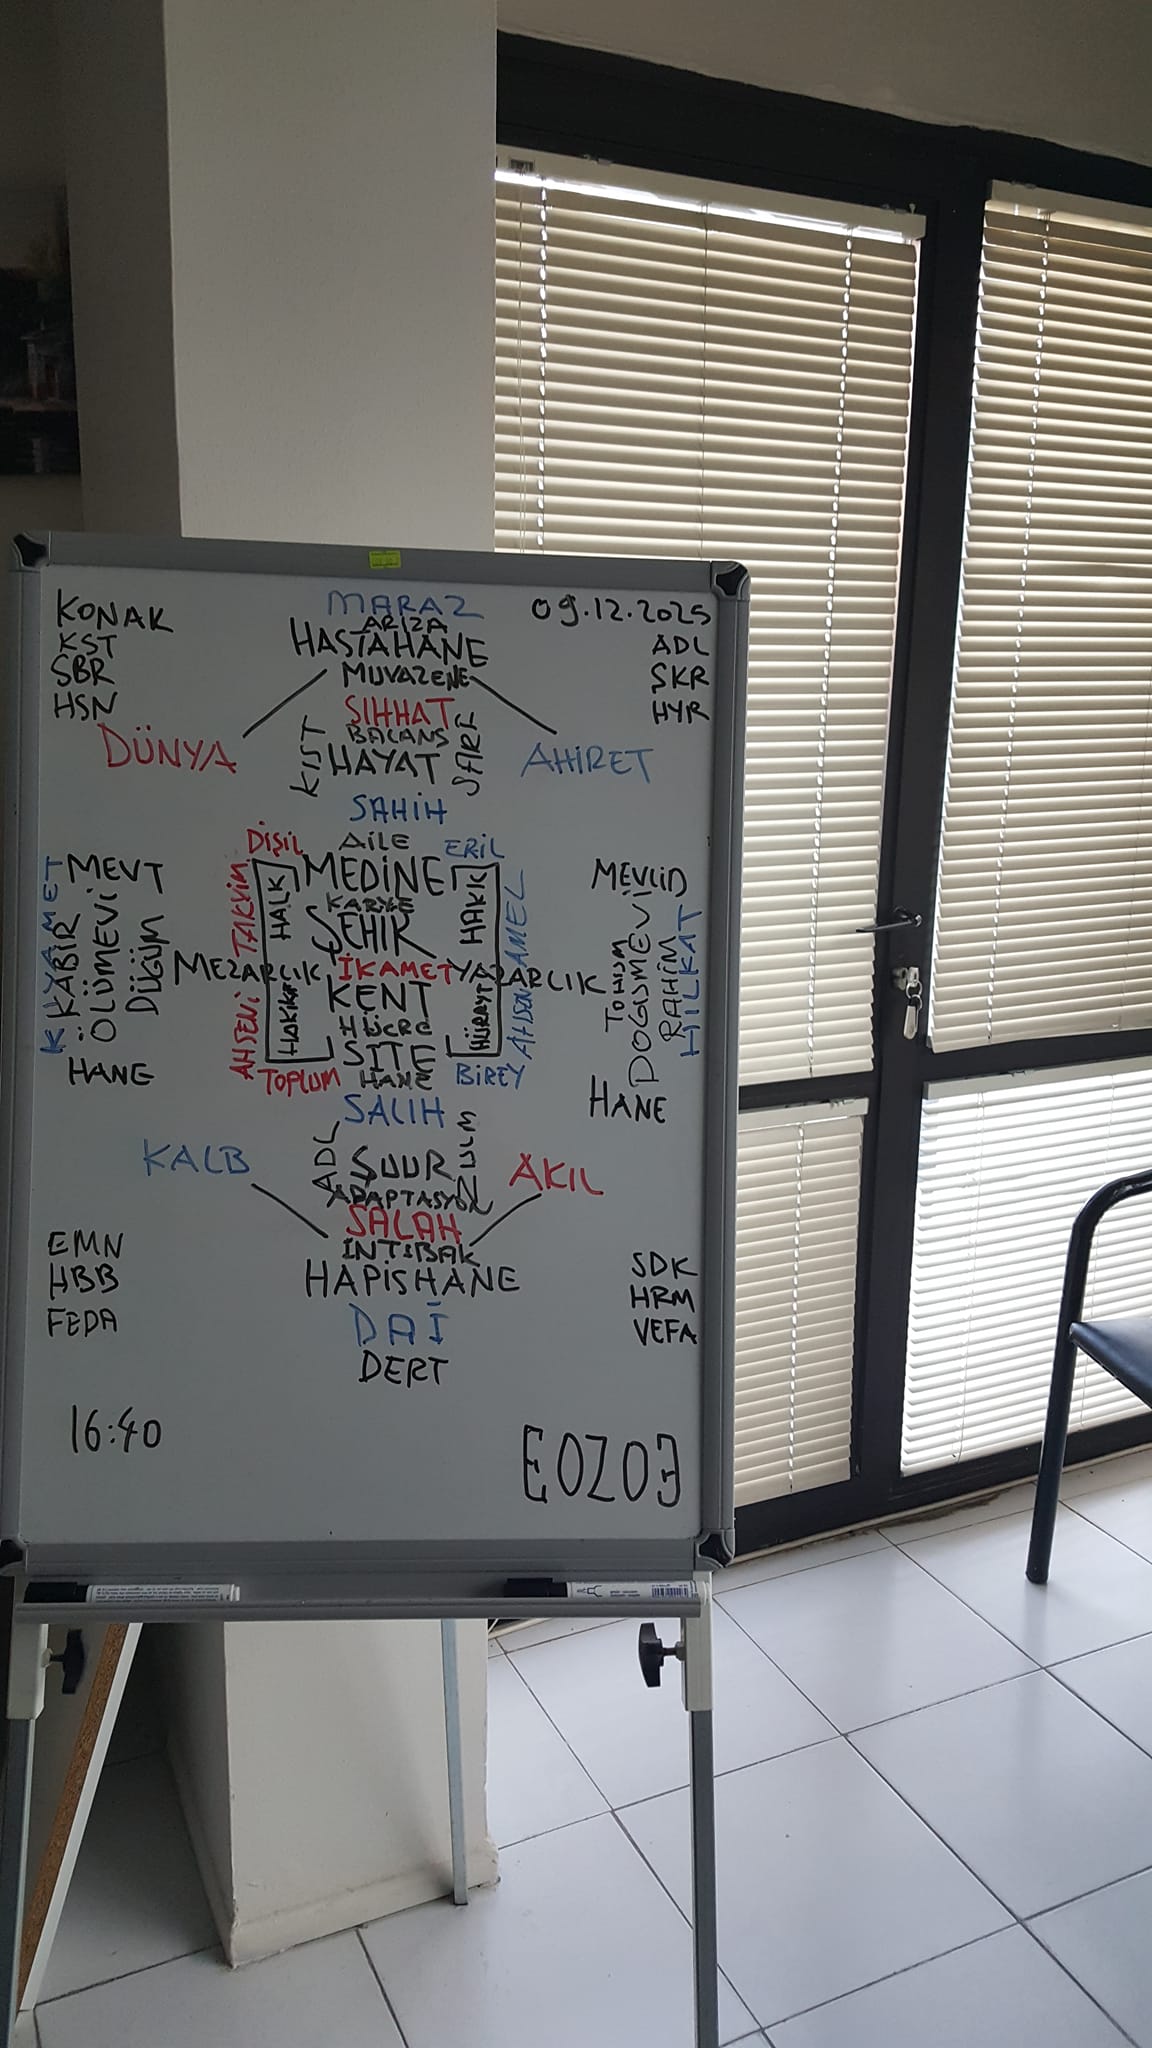 KONAK
KST
SBR
HSN
MARAZ
ARIZA
HASTAHANE
MUVAZENE
09.12.2025
ADL
ŞKR
HYR
DÜNYA
KIST
SIHHAT
BALANS
HAYAT
AHİRET
SAHİH
DİŞİL
AİLE
ERİL
MEDİNE
KARYE
ŞEHİR
MEZARLIK
İKAMET
YAZARLIK
KENT
HÜCRE
SİTE
TOPLUM
HANE
BİREY
SALİH
AHSENİ TAKVİM
HALK
HAKİKAT
HAKK
HÜRİYET
AHSENİ AMEL
MEVT
KIYAMET
KABİR
ÖLÜMEVİ
DÜĞÜM
HANE
MEVLİD
TOHUM
DOĞUMEVİ
RAHİM
HİLKAT
HANE
KALB
ADL
ŞUUR
ZULM
AKIL
ADAPTASYON
SALAH
İNTİBAK
HAPİSHANE
DAİ
DERT
EMN
HBB
FEDA
SDK
HRM
VEFA
16:40